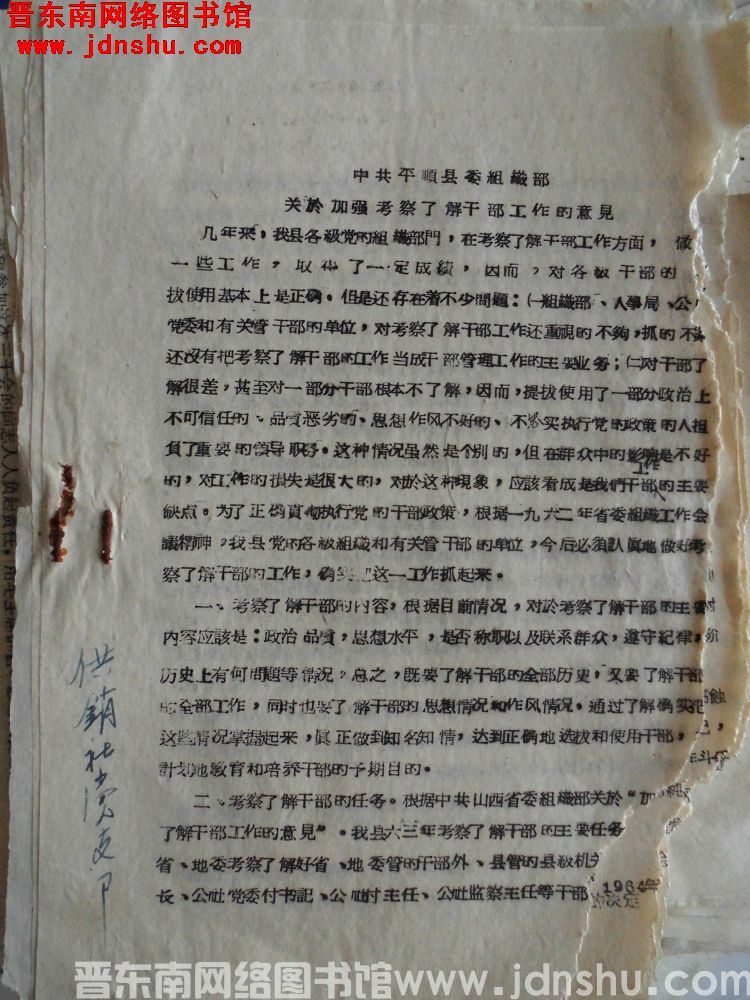 晋东南网络图书馆
www.jdnshu.com
中共平順县委組織部
关於加强考察了解干部工作的意見
几年来，我县各級党的組織部門，在考察了解干部工作方面，做
一些工作，取得了一定成績，因而，对各级干部的
拔使用基本上是正确。但是还存在着不少問題：㈠組織部、人事局、公
党委和有关管干部的单位，对考察了解干部工作还重視的不夠，抓的不
还没有把考察了解干部的工作当成干部管理工作的主要业务；㈡对干部了
解很差，甚至对一部分干部根本不了解，因而，提拔使用了一部分政治上
不可信任的、品質恶劣的、思想作风不好的、不忠实执行党的政策的人担
負了重要的領导职务。这种情况虽然是个别的，但在群众中的影响是不好
的，对工作的損失是很大的，对於这种現象，应該看成是我們干部工作的主要
缺点。为了正确貫彻执行党的干部政策，根据一九六二年省委組織工作会
議精神，我县党的各級組織和有关管干部的单位，今后必須认眞地做好考
察了解干部的工作，确实把这一工作抓起来。
一、考察了解干部的内容，根据目前情况，对於考察了解干部的主要
内容应該是：政治品質，思想水平，是否称职以及联系群众，遵守紀律，
历史上有何問題等情况。总之，既要了解干部的全部历史，又要了解干部
的全部工作，同时也要了解干部的思想情况和作风情况。通过了解确实把
这些情况掌握起来，眞正做到知名知情，达到正确地选拔和使用干部，
計划地教育和培养干部的予期目的。
二、考察了解干部的任务。根据中共山西省委組織部关於“加
了解干部工作的意見”。我县六三年考察了解干部的主要任务
省、地委考察了解好省、地委管的干部外、县管的县級机关
长、公社党委付书記、公社付主任、公社监察主任等干部
1964年
的决定
供銷社党支部
晋东南网络图书馆www.jdnshu.com